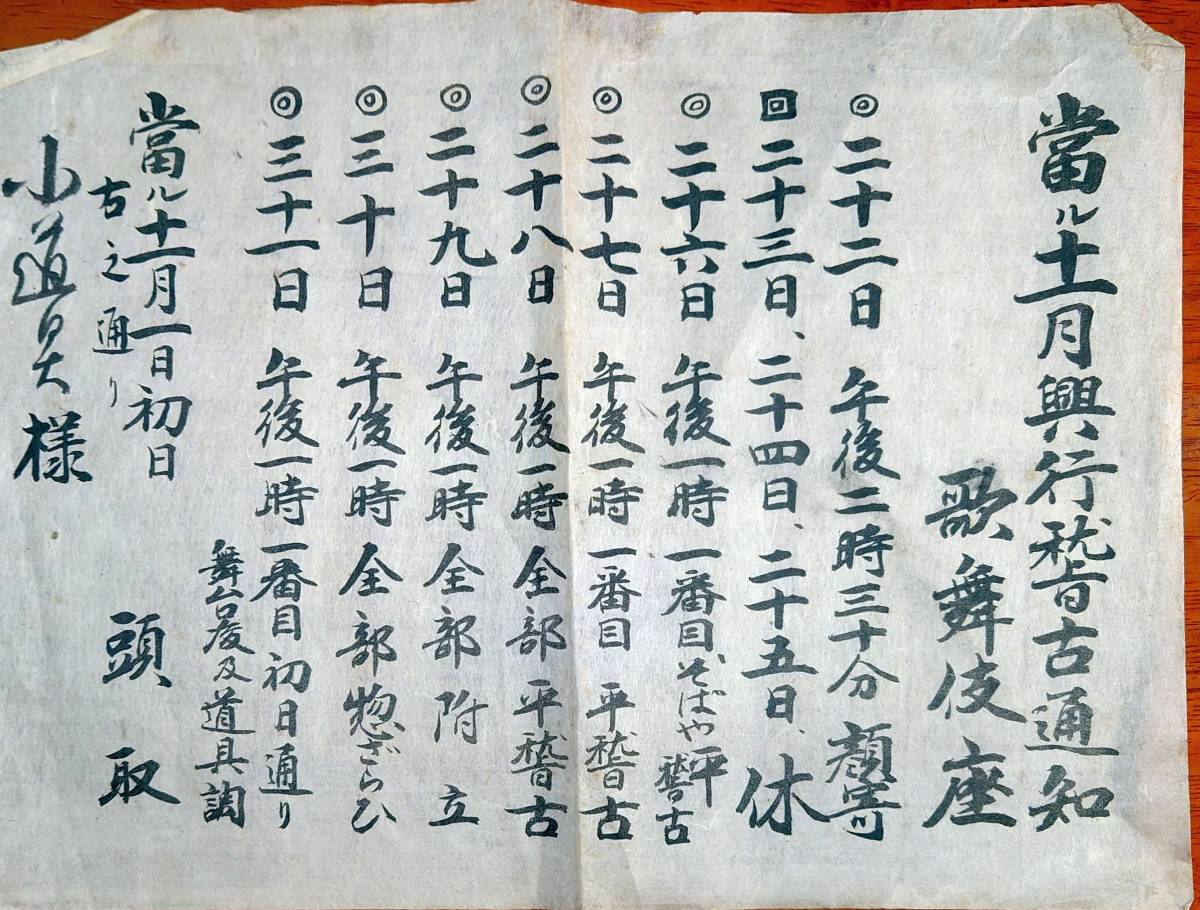 當ル十一月興行稽古通知
歌舞伎座
◎二十二日 午後二時三十分 顔寄
回二十三日、二十四日、二十五日、休
◎二十六日 午後一時 一番目そばや平稽古
◎二十七日 午後一時 一番目 平稽古
◎二十八日 午後一時 全部 平稽古
◎二十九日 午後一時 全部 附立
◎三十日 午後一時 全部 惣ざらひ
◎三十一日 午後一時 一番目初日通り
舞台度及道具調
當ル十一月一日初日
古之通り
頭取
小道具様